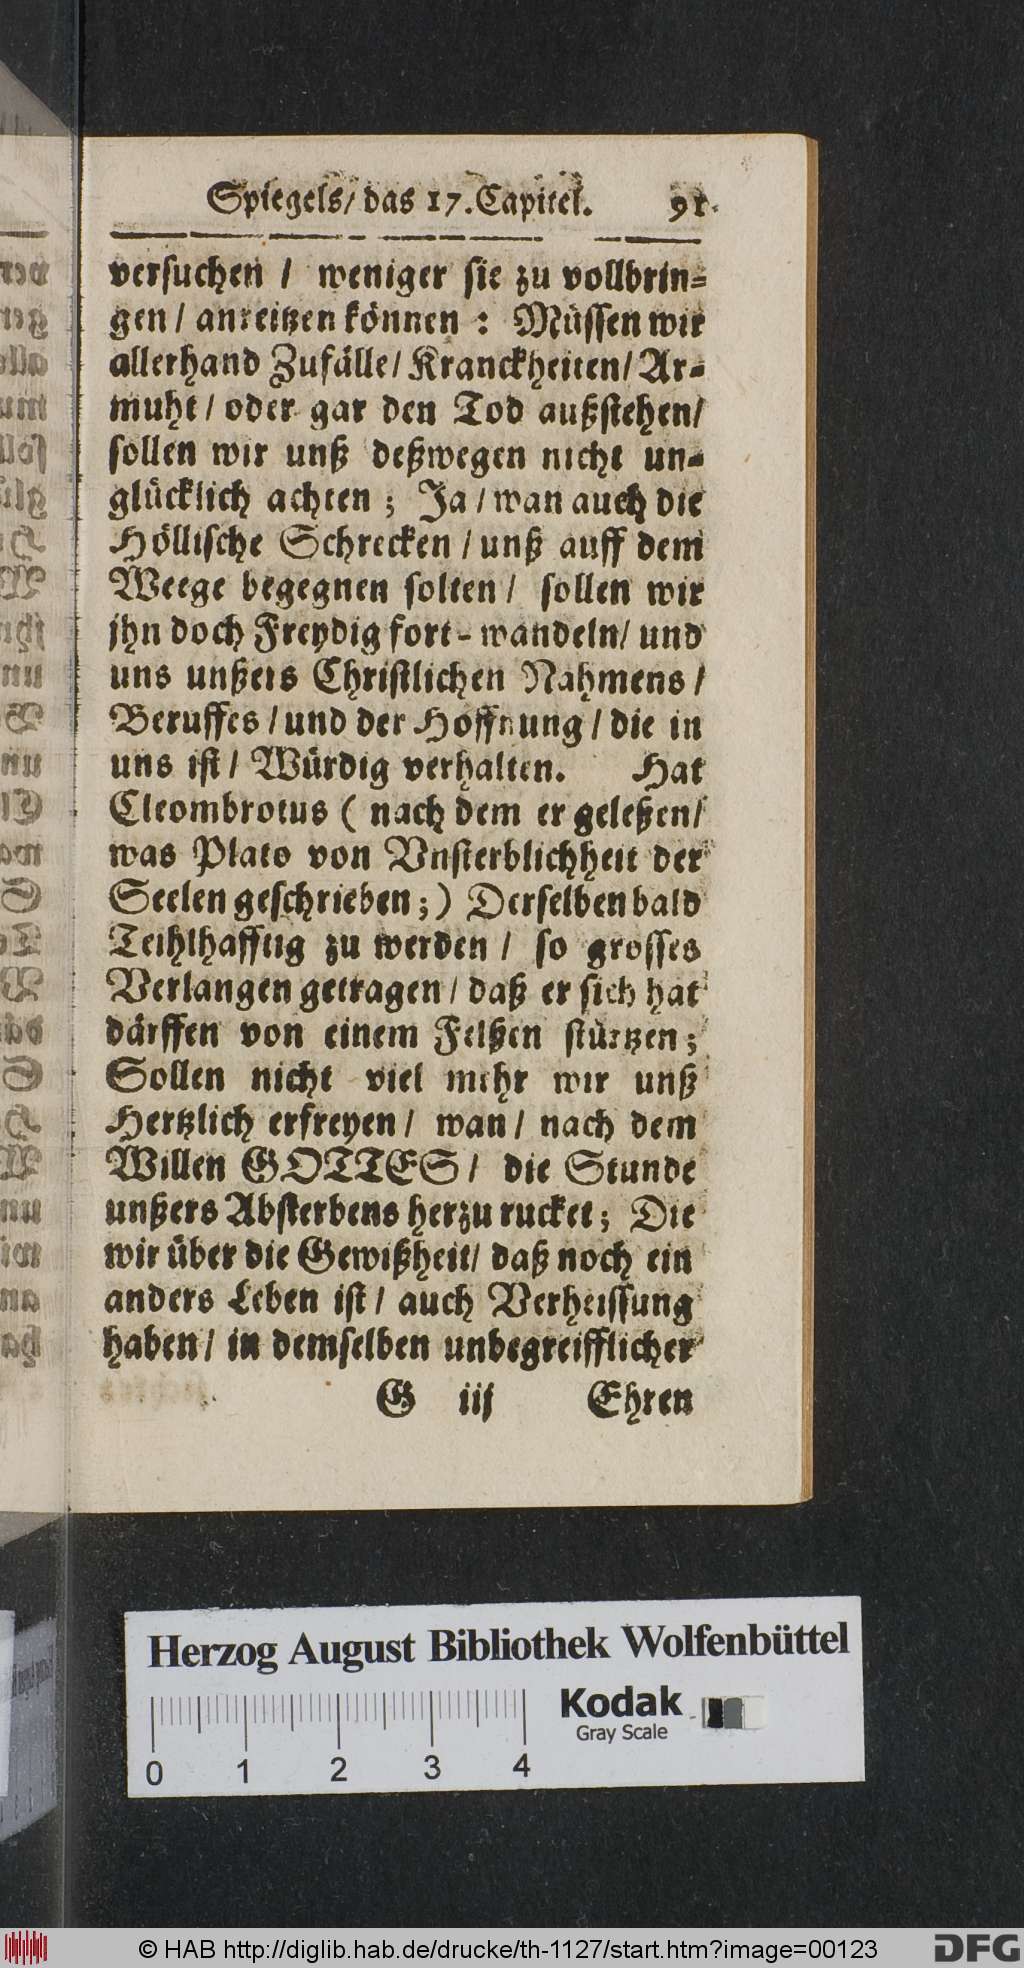 Spiegels/ das 17. Capitel. 91
versuchen / weniger sie zu vollbrin=
gen / anreitzen können : Müssen wir
allerhand Zufälle/ Kranckheiten/ Ar=
muht / oder gar den Tod außstehen/
sollen wir unß deßwegen nicht un=
glücklich achten ; Ja / wan auch die
Höllische Schrecken / unß auff dem
Weege begegnen solten / sollen wir
jhn doch Freydig fort - wandeln/ und
uns unßers Christlichen Nahmens /
Beruffes / und der Hoffnung / die in
uns ist / Würdig verhalten. Hat
Cleombrotus ( nach dem er geleßen/
was Plato von Vnsterblichheit der
Seelen geschrieben ;) Derselben bald
Teihlhafftig zu werden / so grosses
Verlangen getragen / daß er sich hat
därffen von einem Felßen stürtzen ;
Sollen nicht viel mehr wir unß
Hertzlich erfreyen / wan / nach dem
Willen GOTTES / die Stunde
unßers Absterbens herzu rucket ; Die
wir über die Gewißheit/ daß noch ein
anders Leben ist / auch Verheissung
haben / in demselben unbegreifflicher
G iij Ehren
Herzog August Bibliothek Wolfenbüttel
Kodak
Gray Scale
0 1 2 3 4
© HAB http://diglib.hab.de/drucke/th-1127/start.htm?image=00123
DFG